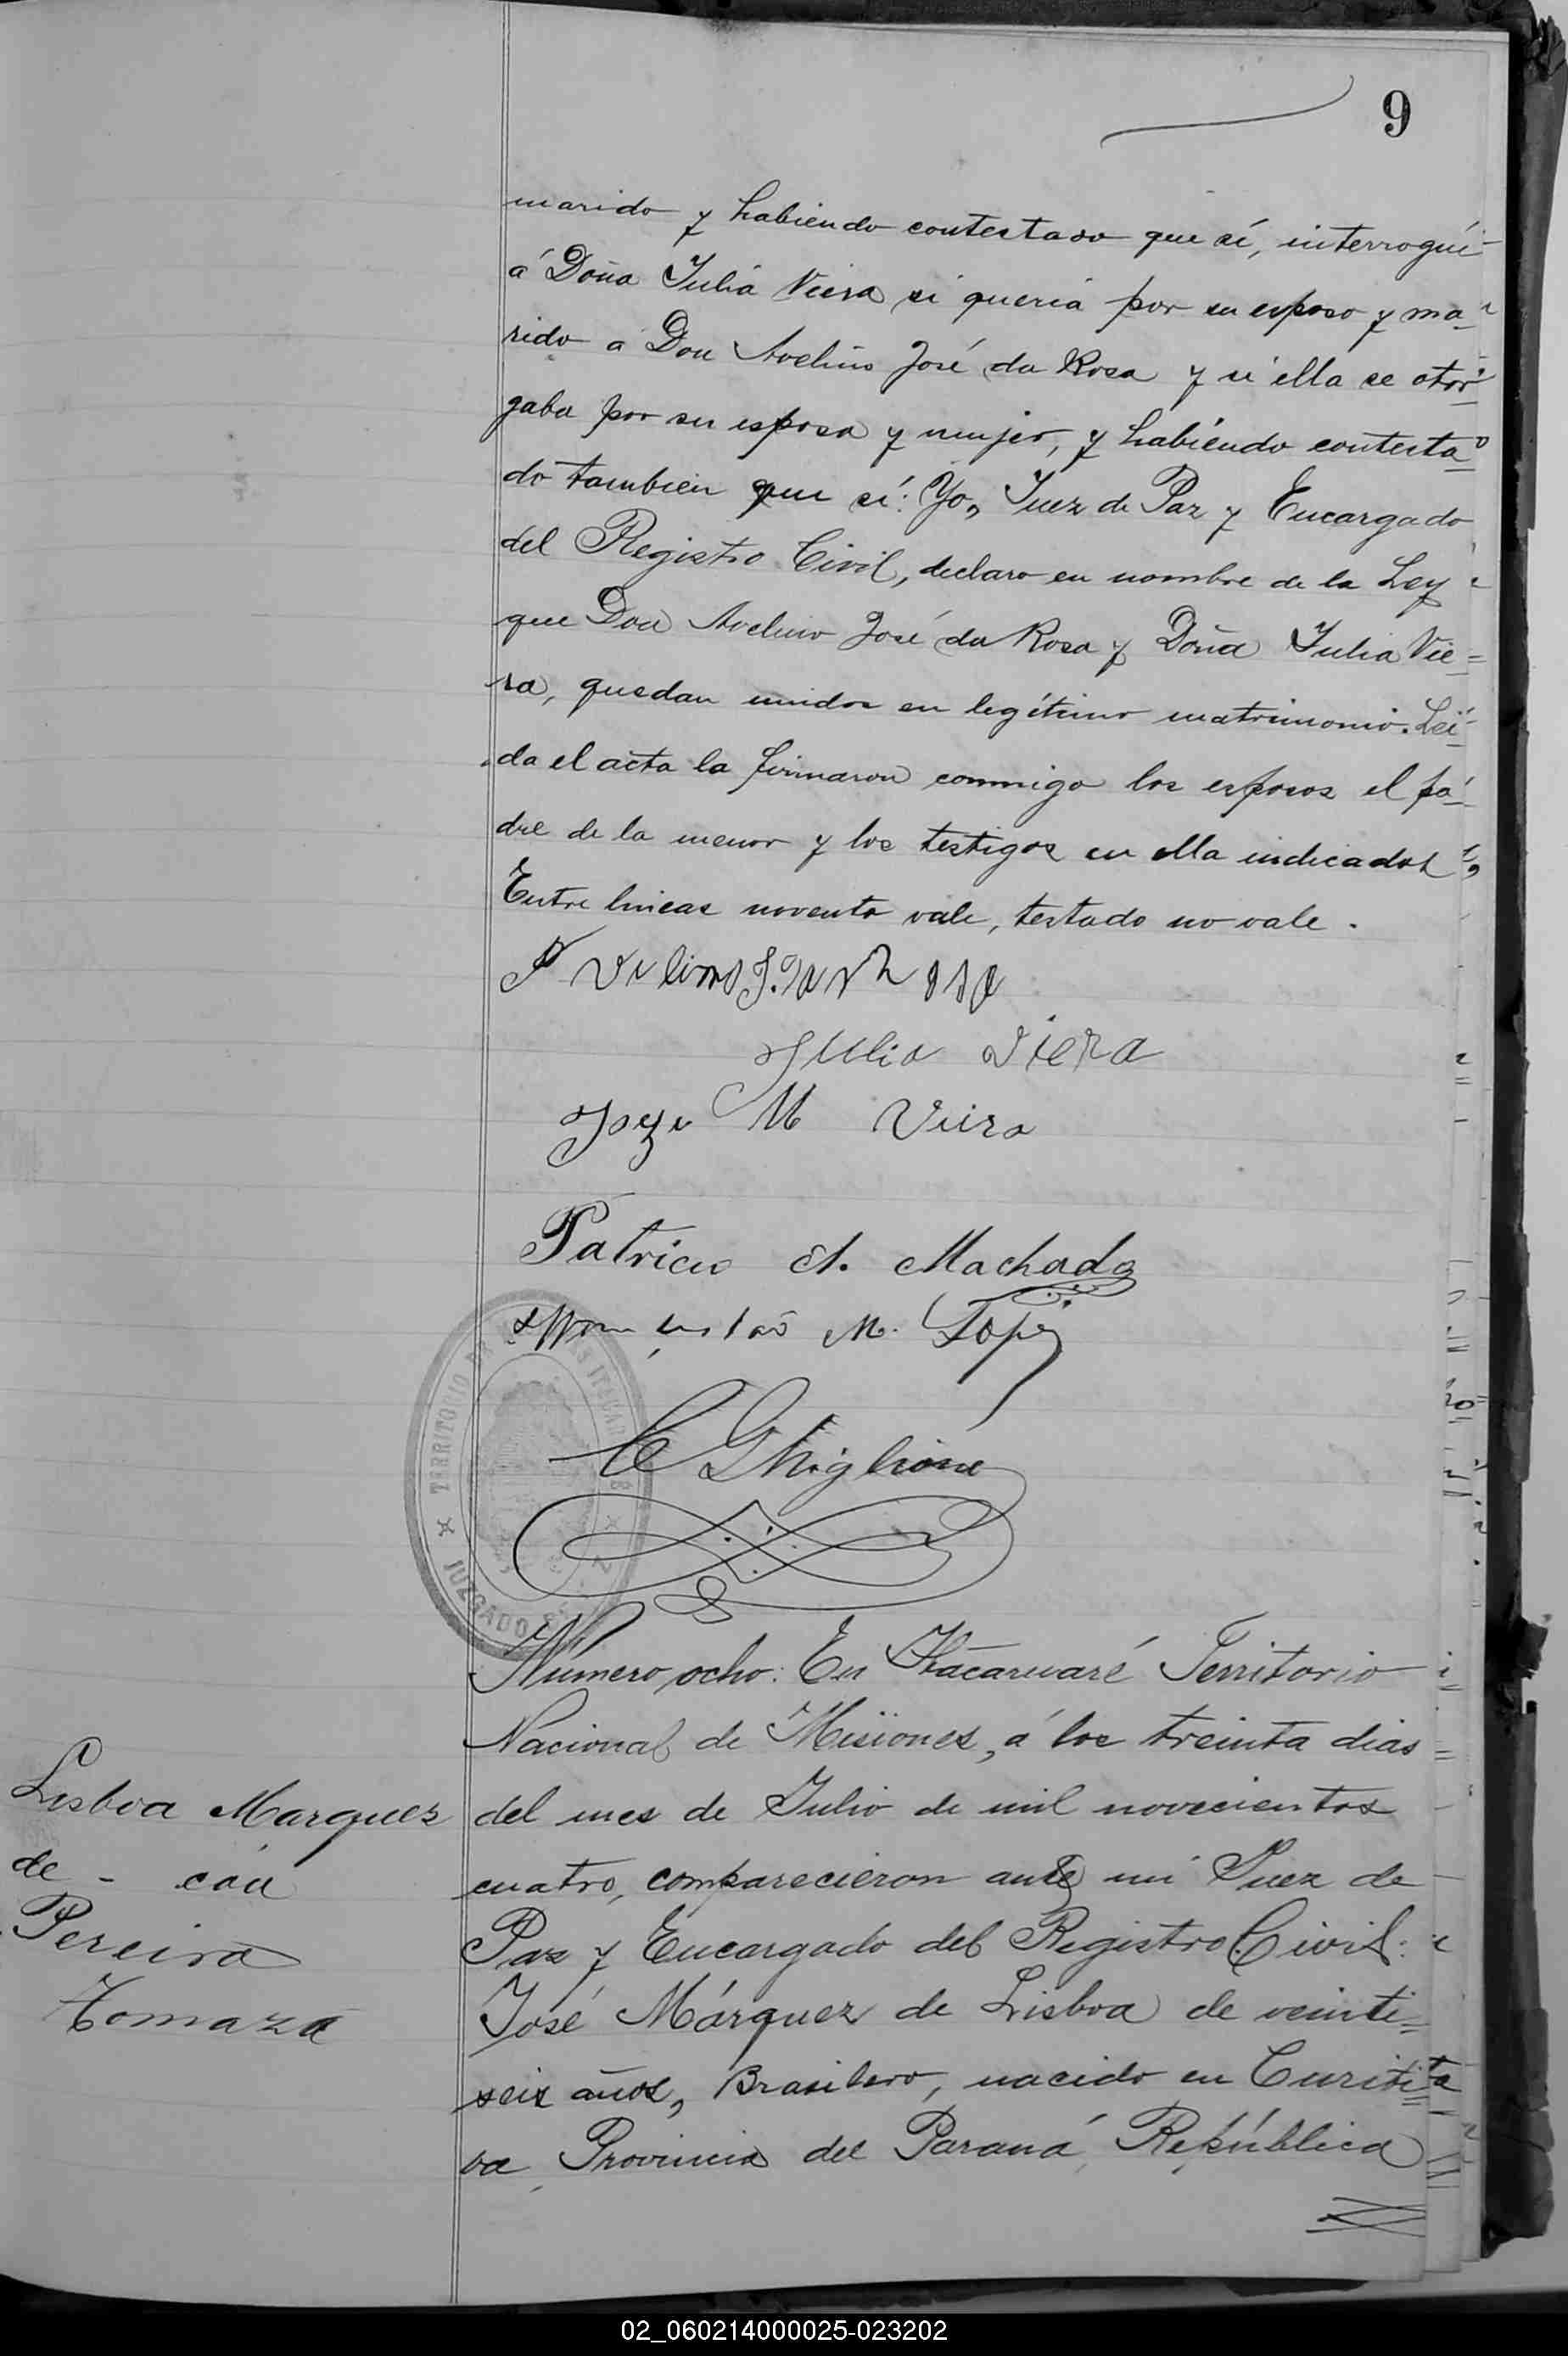 9
marido y habiendo contestado que sí, interrogué
á Doña Julia Viera si queria por su esposo y ma=
rido a Don Avelino José da Rosa y si ella se otor=
gaba por su esposa y mujer, y habiendo contesta=
do tambien que sí: Yo, Juez de Paz y Encargado
del Registro Civil, declaro en nombre de la Ley
que Don Avelino José da Rosa y Doña Julia Vie=
ra, quedan unidos en legítimo matrimonio. Leí=
da el acta la firmaron conmigo los esposos el pa=
dre de la menor y los testigos en ella indicados,
Entre lineas noventa vale, testado no vale.
Julia Viera
Joze M Viera
Patricio A. Machado
M. Lopez
C Ghiglione
TERRITORIO
JUZGADO
Número ocho: En Itacaruaré Territorio
Nacional de Misiones, á los treinta dias
del mes de Julio de mil novecientos
cuatro, comparecieron ante mi Juez de
Paz y Encargado del Registro Civil:
José Márquez de Lisboa de veinti=
seis años, Brasilero, nacido en Curiti=
va, Provincia del Paraná, República
Lisboa Marquez
de - con
Pereira
Tomaza
02_060214000025-023202